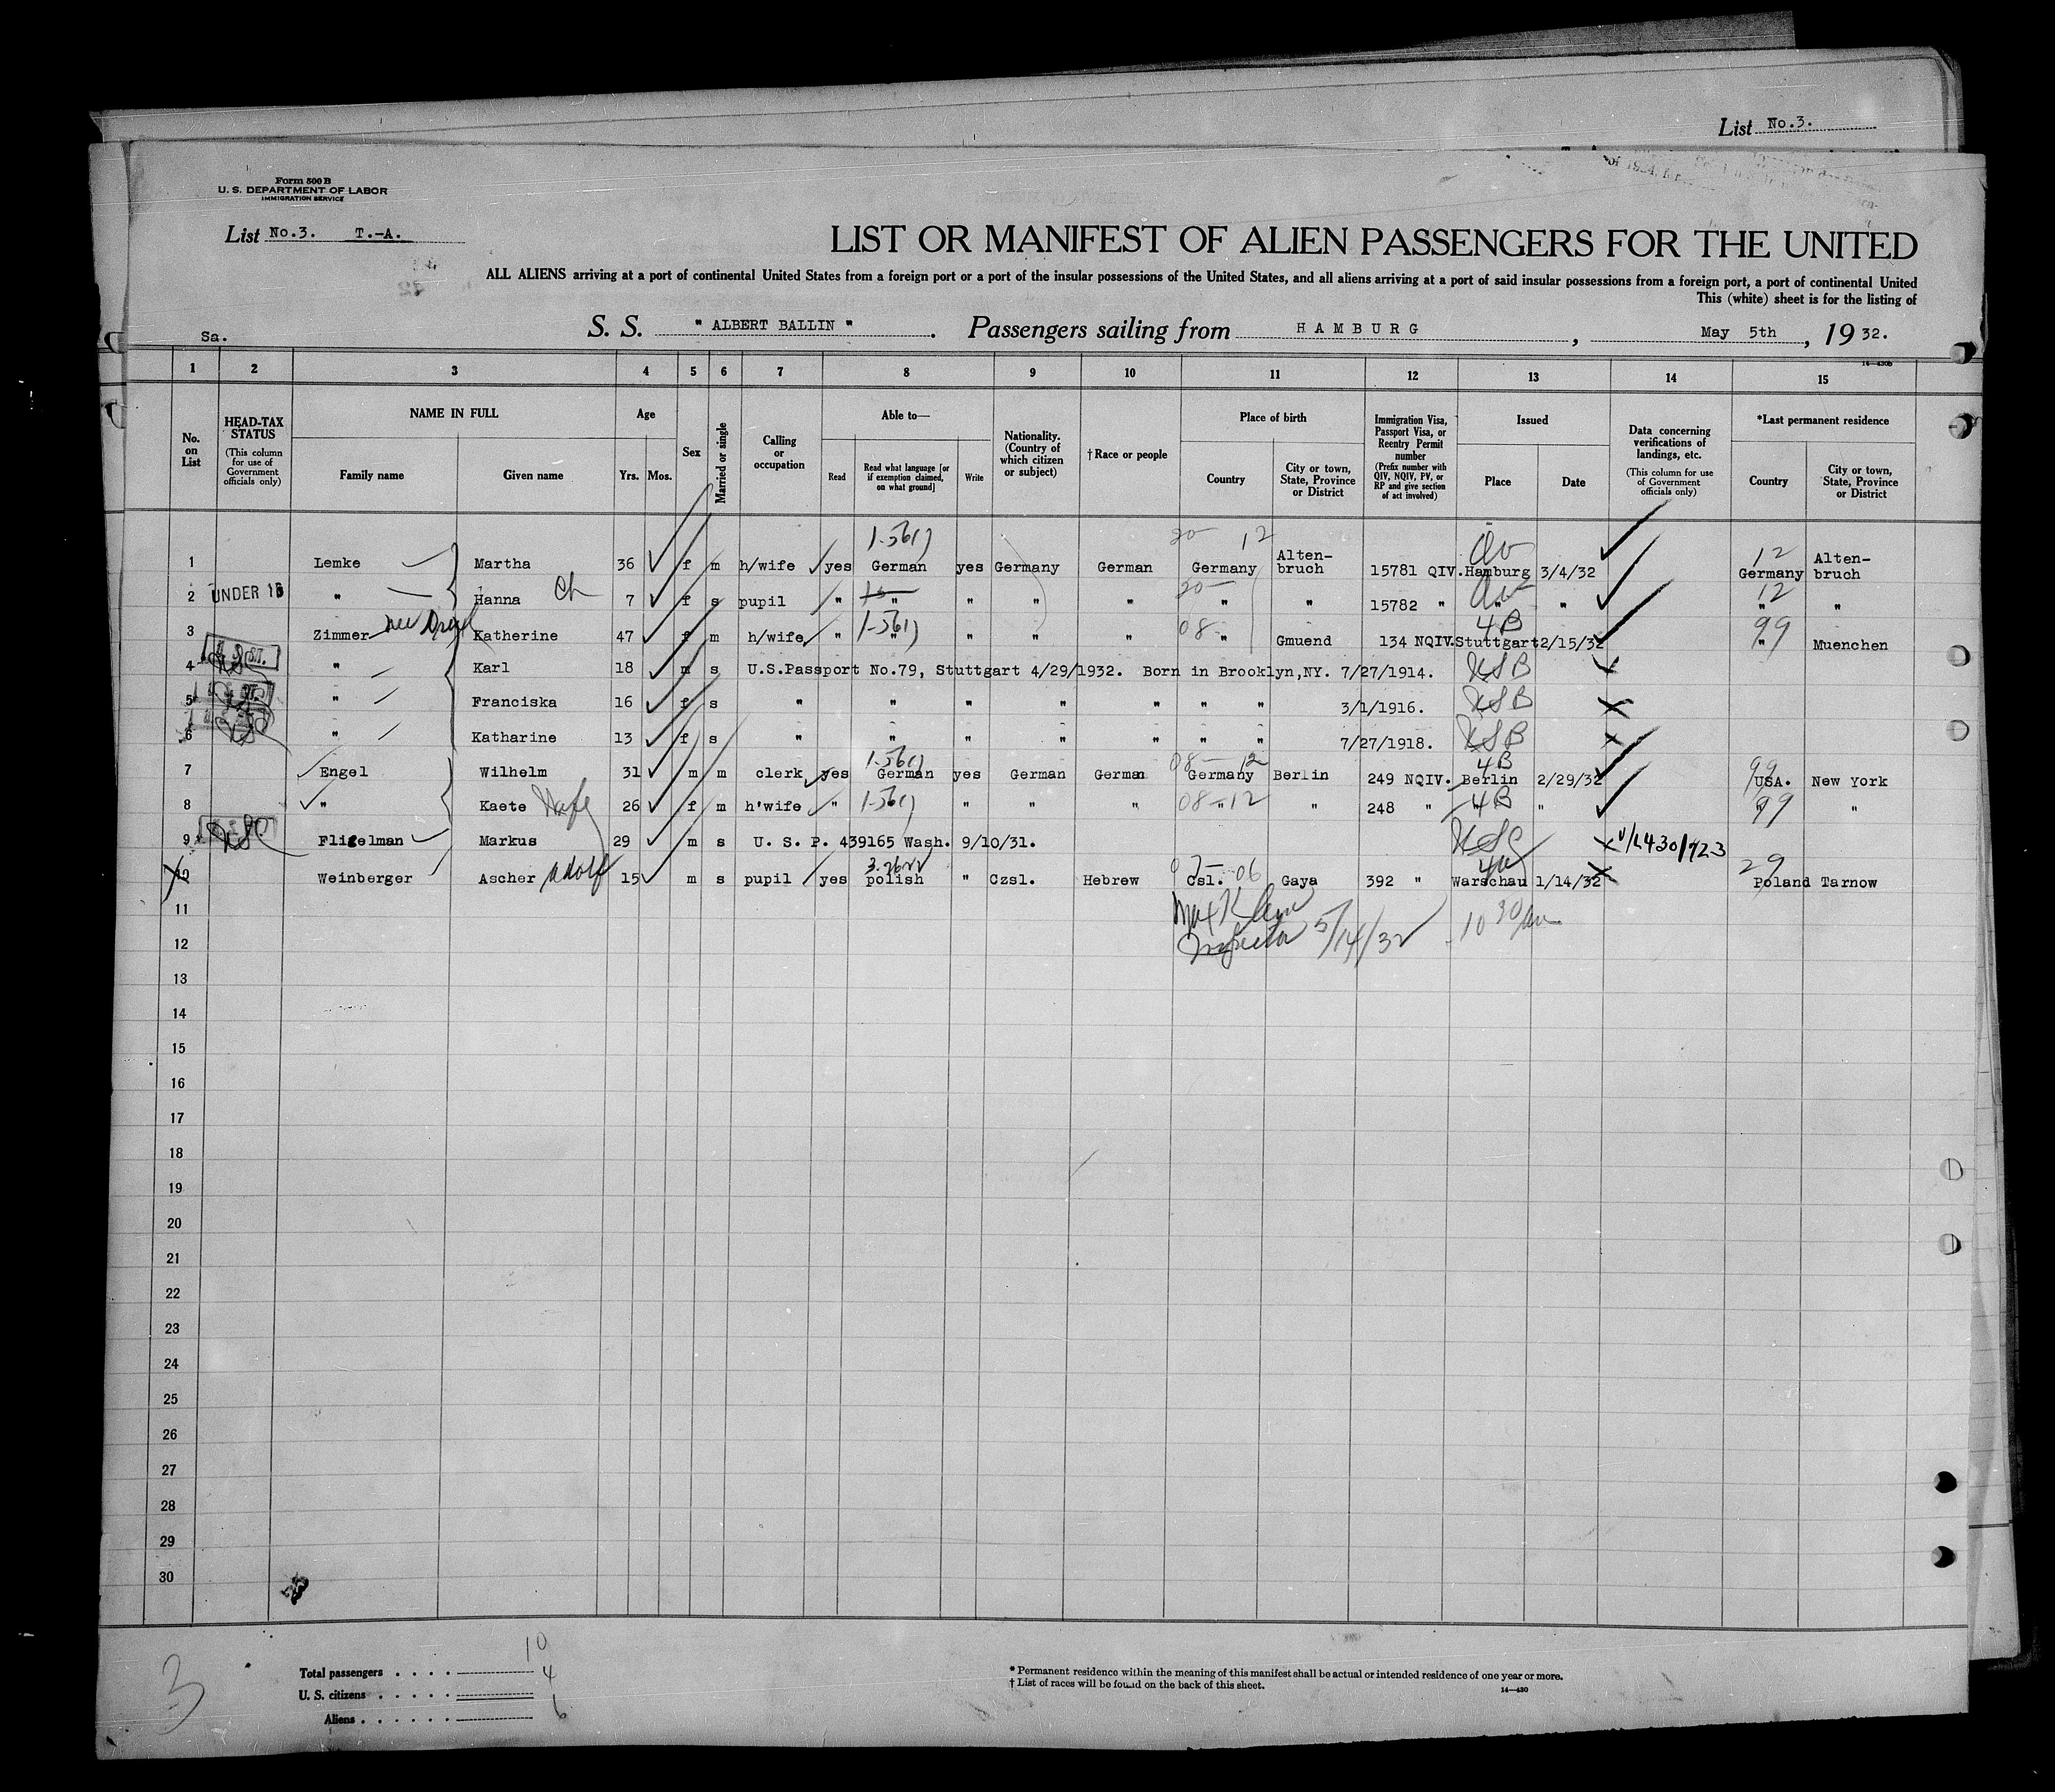 List No.3.
Form 500 B
U. S. DEPARTMENT OF LABOR
IMMIGRATION SERVICE
List No.3. T.-A.
LIST OR MANIFEST OF ALIEN PASSENGERS FOR THE UNITED
ALL ALIENS arriving at a port of continental United States from a foreign port or a port of the insular possessions of the United States, and all aliens arriving at a port of said insular possessions from a foreign port, a port of continental United
This (white) sheet is for the listing of
Sa. S. S. " ALBERT BALLIN ". Passengers sailing from HAMBURG, May 5th, 19 32.
14—430b
1 2 3 4 5 6 7 8 9 10 11 12 13 14 15
No. on List
HEAD-TAX STATUS
(This column for use of Government officials only)
NAME IN FULL
Family name Given name
Age
Yrs. Mos.
Sex
Married or single
Calling or occupation
Able to—
Read
Read what language [or if exemption claimed, on what ground]
Write
Nationality. (Country of which citizen or subject)
†Race or people
Place of birth
Country
City or town, State, Province or District
Immigration Visa, Passport Visa, or Reentry Permit number
(Prefix number with QIV, NQIV, PV, or RP and give section of act involved)
Issued
Place Date
Data concerning verifications of landings, etc.
(This column for use of Government officials only)
*Last permanent residence
Country
City or town, State, Province or District
1 Lemke Martha 36 f m h/wife yes German yes Germany German Germany Alten-bruch 15781 QIV. Hamburg 3/4/32 12 Germany Alten-bruch
2 UNDER 16 " Hanna Ch 7 f s pupil " " " " " " " 15782 " " " 12 " "
3 Zimmer Katherine 47 f m h/wife " " " " " 08 " Gmuend 134 NQIV. 4B Stuttgart 2/15/32 99 " Muenchen
4 " Karl 18 m s U.S.Passport No.79, Stuttgart 4/29/1932. Born in Brooklyn,NY. 7/27/1914.
5 " Franciska 16 f s " " " " " " " 3/1/1916.
6 " Katharine 13 f s " " " " " " " 7/27/1918.
7 Engel Wilhelm 31 m m clerk yes German yes German German 08-12 Germany Berlin 249 NQIV. 4B Berlin 2/29/32 99 USA. New York
8 " Kaete 26 f m h'wife " " " " 08-12 " " 248 " 4B " " 99 " "
9 Fligelman Markus 29 m s U. S. P. 439165 Wash. 9/10/31.
10 Weinberger Ascher Adolf 15 m s pupil yes polish " Czsl. Hebrew Csl. 06 Gaya 392 " Warschau 1/14/32 29 Poland Tarnow
11 Inspector 5/14/32 10 30
12
13
14
15
16
17
18
19
20
21
22
23
24
25
26
27
28
29
30
3
Total passengers . . . . 10
U. S. citizens . . . . . 4
Aliens . . . . . . 6
* Permanent residence within the meaning of this manifest shall be actual or intended residence of one year or more.
† List of races will be found on the back of this sheet.
14—430